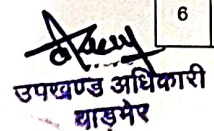 6
उपखण्ड अधिकारी
बाड़मेर